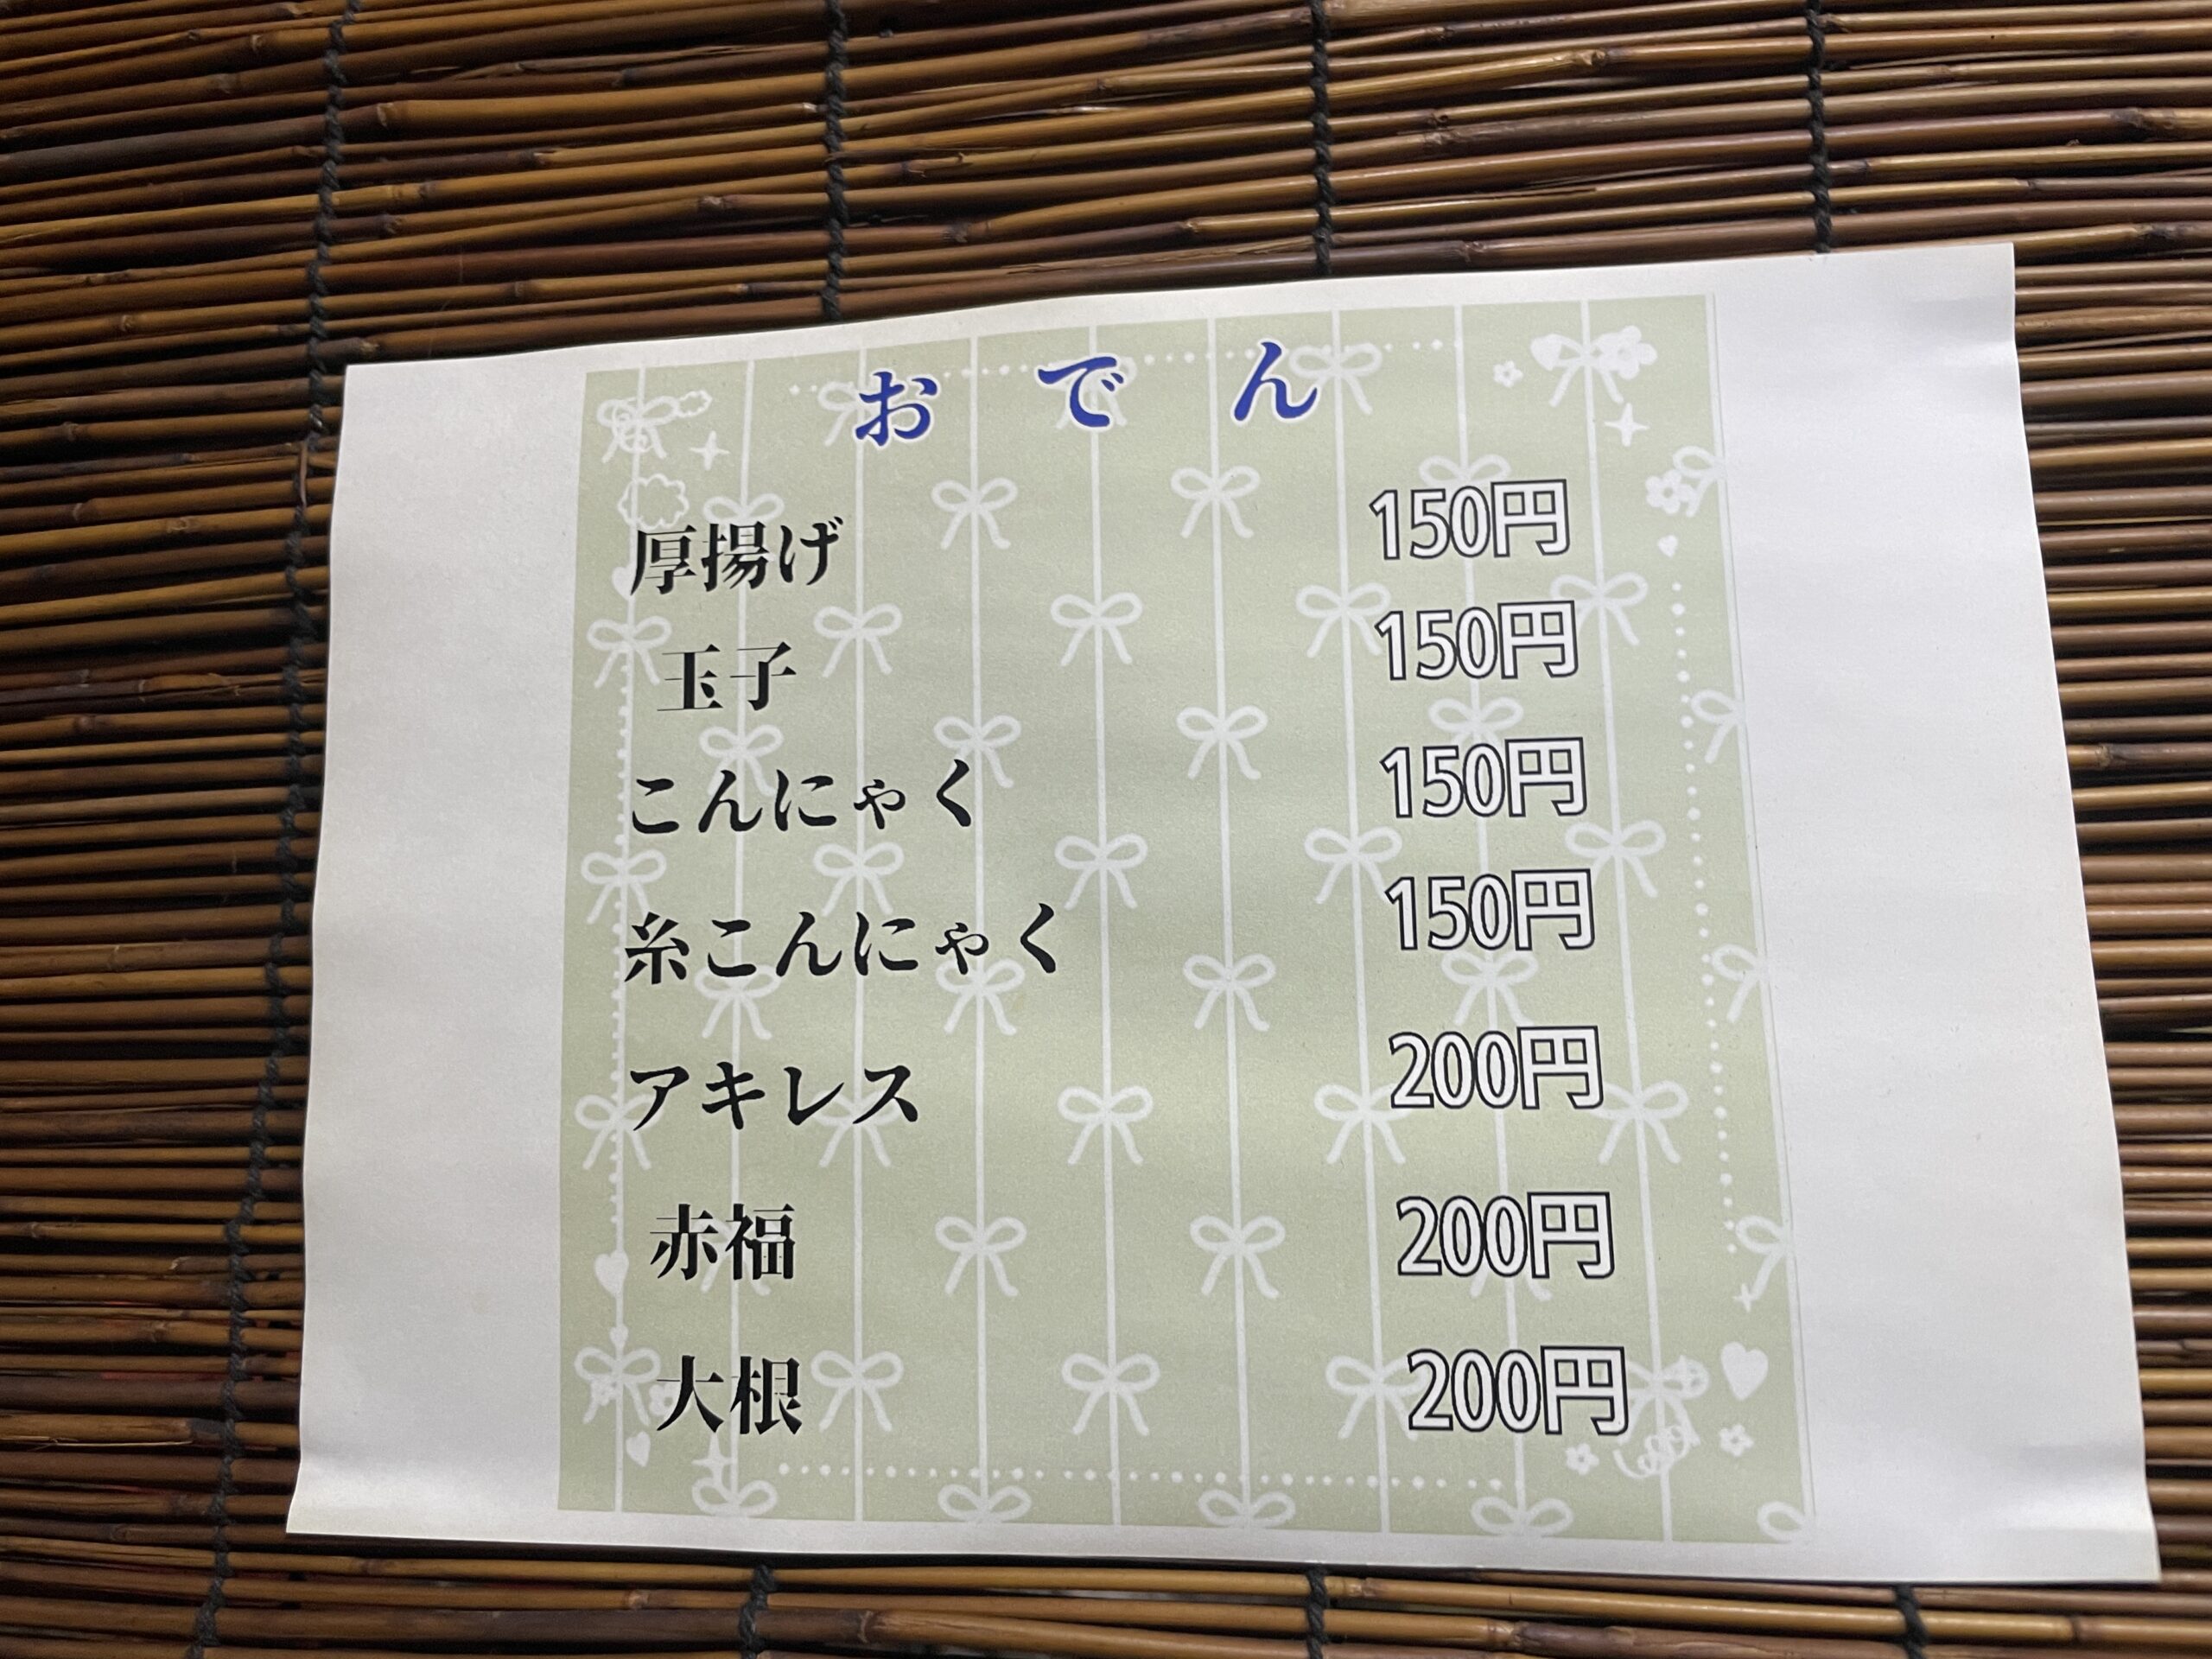 おでん
厚揚げ 150円
玉子 150円
こんにゃく 150円
糸こんにゃく 150円
アキレス 200円
赤福 200円
大根 200円